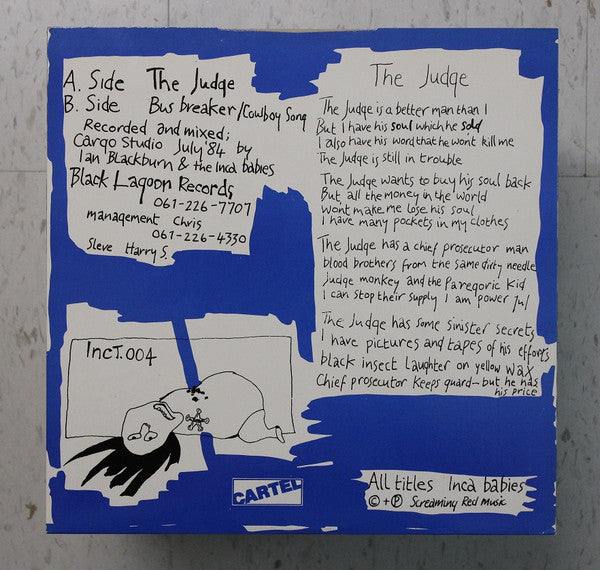 A. Side The Judge
B. Side Bus breaker/Cowboy Song
Recorded and mixed;
Cargo Studio July '84 by
Ian Blackburn & the Inca babies
Black Lagoon Records
061-226-7707
management Chris
061-226-4330
Sleve Harry S.
The Judge
The Judge is a better man than I
But I have his soul which he sold
I also have his word that he wont kill me
The Judge is still in trouble
The Judge wants to buy his soul back
But all the money in the world
Wont make me lose his soul
I have many pockets in my clothes
The Judge has a chief prosecutor man
blood brothers from the same dirty needle
judge monkey and the Paregoric Kid
I can stop their supply I am power ful
The Judge has some sinister secrets
I have pictures and tapes of his efforts
black insect laughter on yellow wax
Chief prosecutor keeps guard - but he has
his price
IncT.004
CARTEL
All titles Inca babies
© + ℗ Screaming Red Music